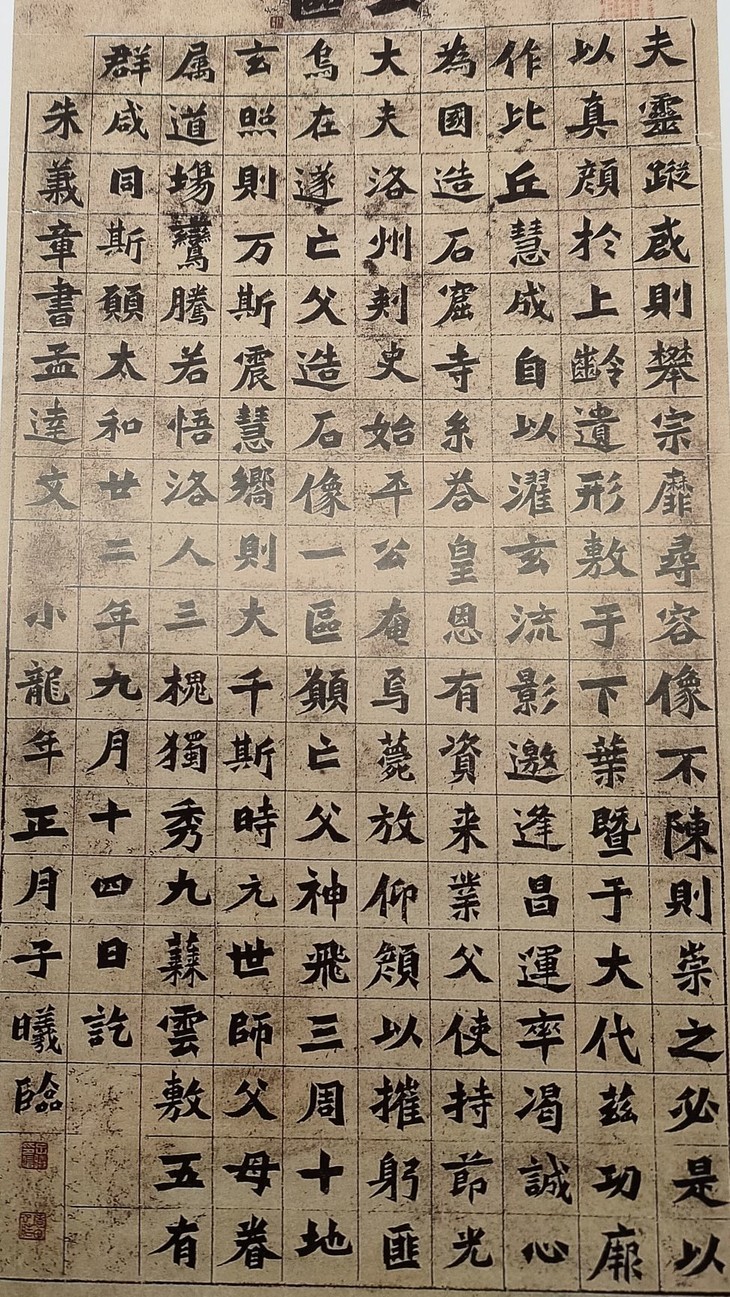 夫靈蹤則攀宗靡尋容像不陳則崇之必是以
以真顔於上齡遺形敷于下葉暨于大代茲功厥
作比丘慧成自以濯玄流影邀逢昌運率渴誠心
為國造石窟寺系荅皇恩有資来業父使持節光
大夫洛州刾史始平公奄焉薨放仰顔以摧躬匪
烏在遂亡父造石像一區願亡父神飛三周十地
玄照則万斯震慧嚮則大千斯時元世師父母眷
属道場鸞騰若悟洛人三槐獨秀九蕀雲敷五有
群咸同斯願太和廿二年九月十四日訖
朱義章書孟達文 小龍年正月子曦臨